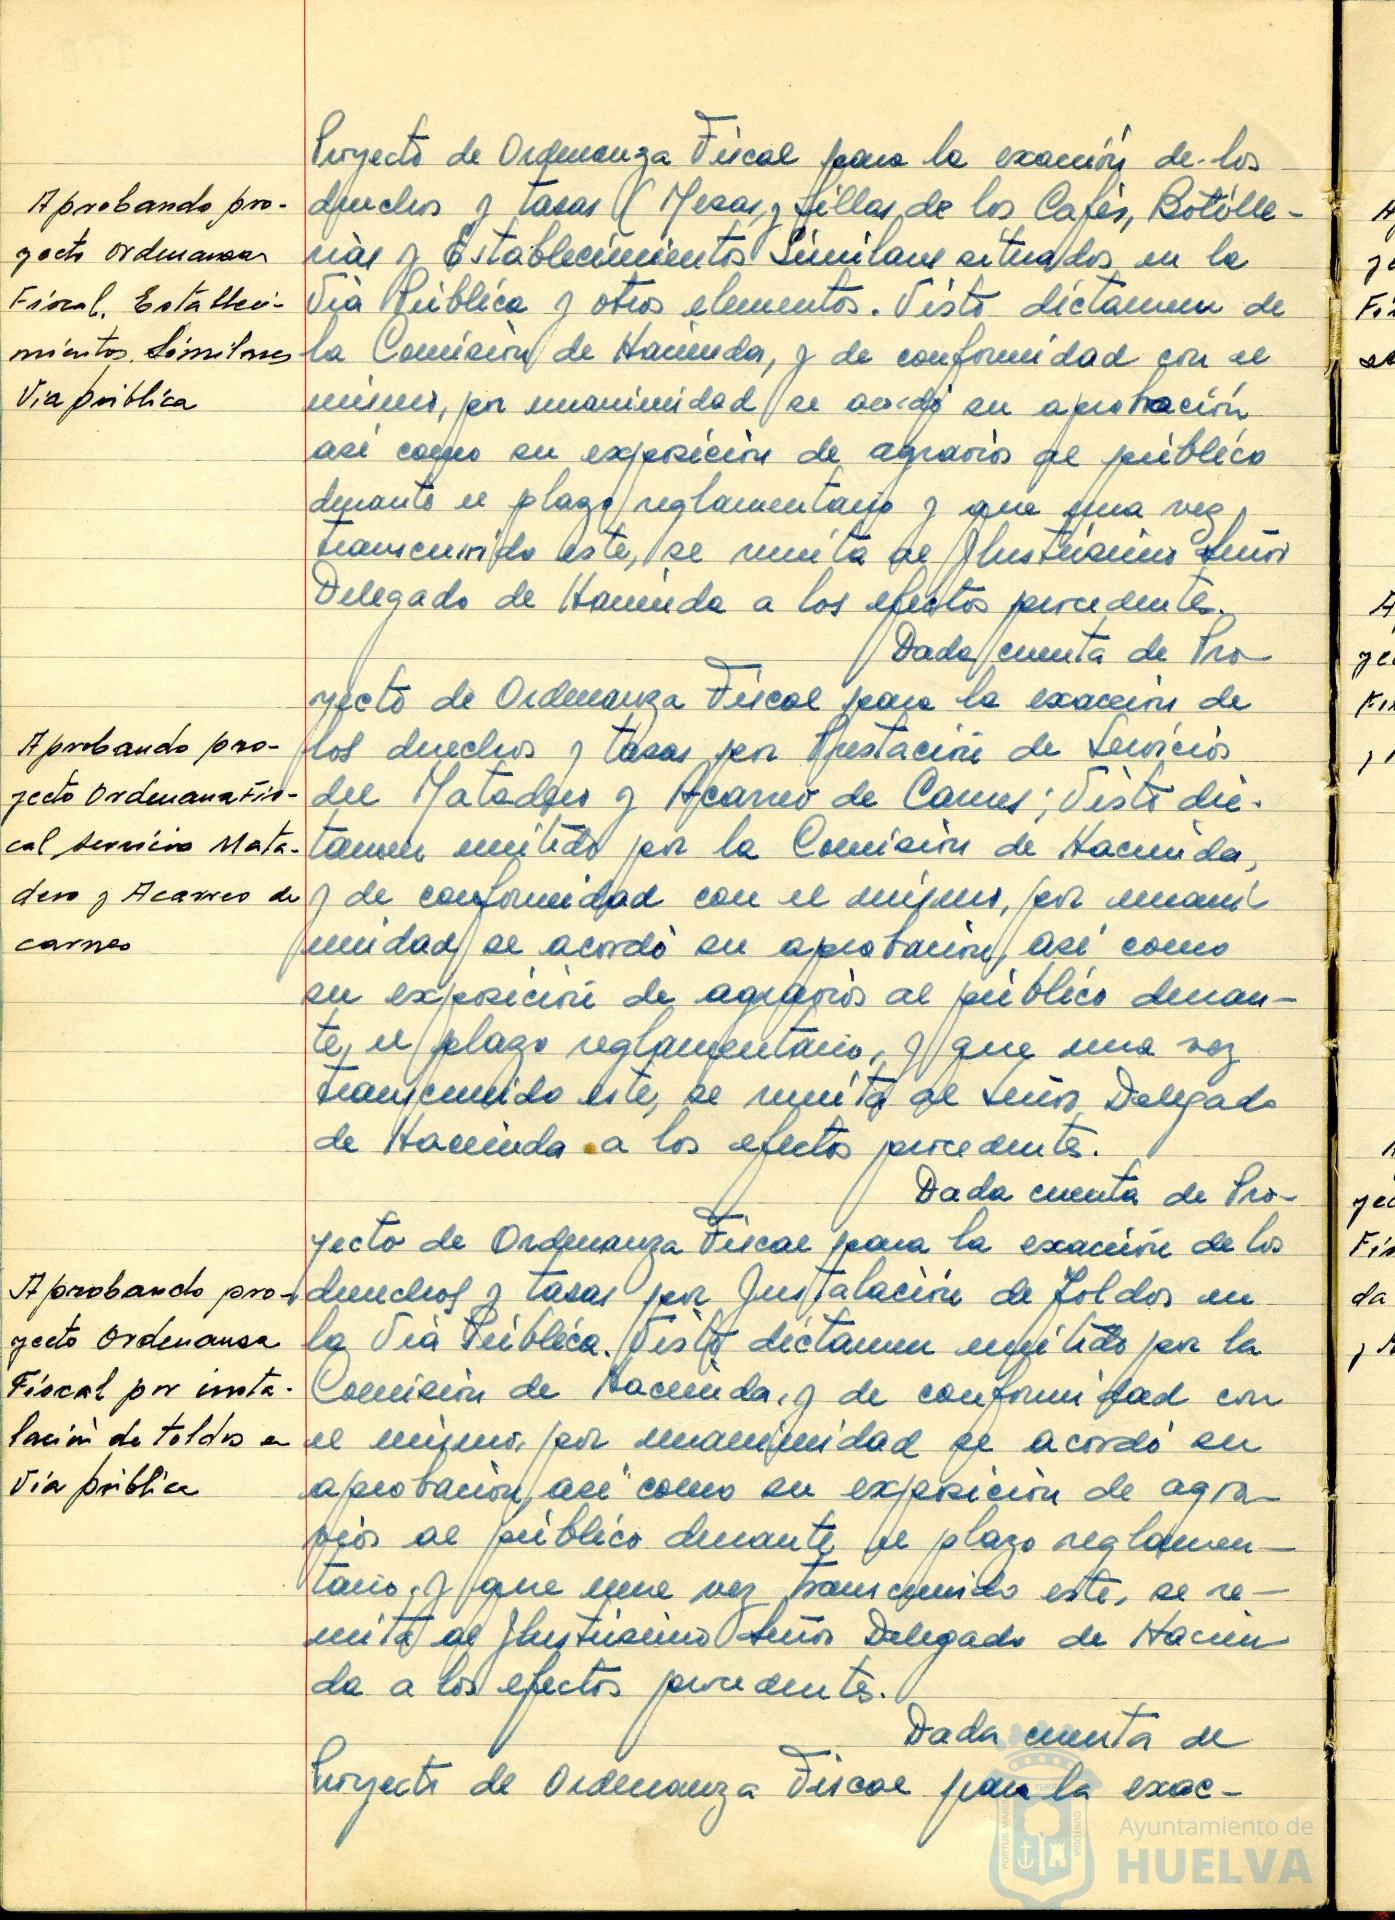 Proyecto de Ordenanza Fiscal para la exacción de los
Aprobando pro-
yecto Ordenanza
Fiscal. Estableci-
mientos Similares
Vía pública
derechos y tasas (Mesas y sillas de los Cafés, Botille-
rías y Establecimientos Similares situados en la
Vía Pública y otros elementos. Visto dictamen de
la Comisión de Hacienda, y de conformidad con el
mismo, por unanimidad se acordó su aprobación
así como su exposición de agravios al público
durante el plazo reglamentario y que una vez
transcurrido este, se remita al Ilustrísimo Señor
Delegado de Hacienda a los efectos procedentes.
Dada cuenta de Pro-
yecto de Ordenanza Fiscal para la exacción de
Aprobando pro-
yecto Ordenanza Fis-
cal servicio Mata-
dero y Acarreo de
carnes
los derechos y tasas por Prestación de Servicios
del Matadero y Acarreo de Carnes; Visto dic-
tamen emitido por la Comisión de Hacienda,
y de conformidad con el mismo, por unani-
midad se acordó su aprobación, así como
su exposición de agravios al público duran-
te, el plazo reglamentario, y que una vez
transcurrido este, se remita al Señor Delegado
de Hacienda a los efectos procedentes.
Dada cuenta de Pro-
yecto de Ordenanza Fiscal para la exacción de los
Aprobando pro-
yecto Ordenanza
Fiscal por insta-
lación de toldos en
Vía pública
derechos y tasas por Instalación de Toldos en
la Vía Pública. Visto dictamen emitido por la
Comisión de Hacienda, y de conformidad con
el mismo, por unanimidad se acordó su
aprobación, así como su exposición de agra-
vios al público durante el plazo reglamen-
tario, y que una vez transcurrido este, se re-
mita al Ilustrísimo Señor Delegado de Hacien
da a los efectos procedentes.
Dada cuenta de
Proyecto de Ordenanza Fiscal para la exac-
Ayuntamiento de
HUELVA